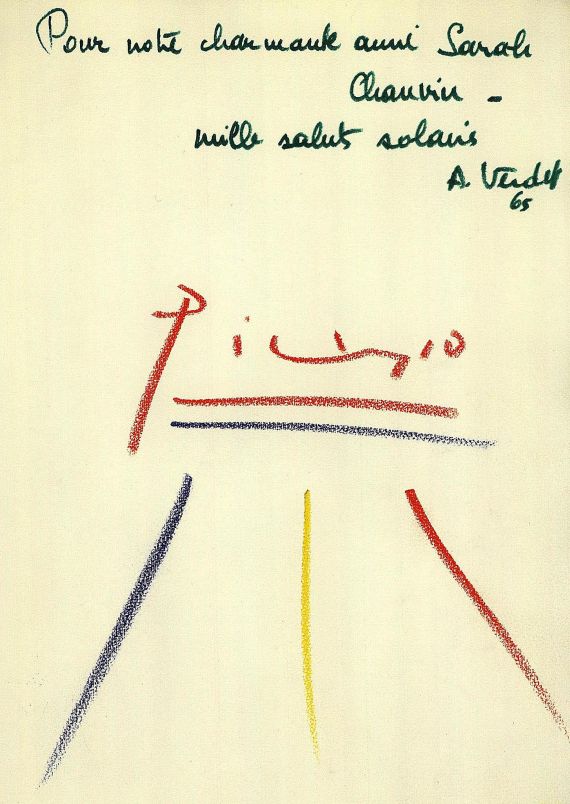 Pour notre charmante amie Sarah
Chauvin -
mille saluts solaires
A. Verdet
65
Picasso